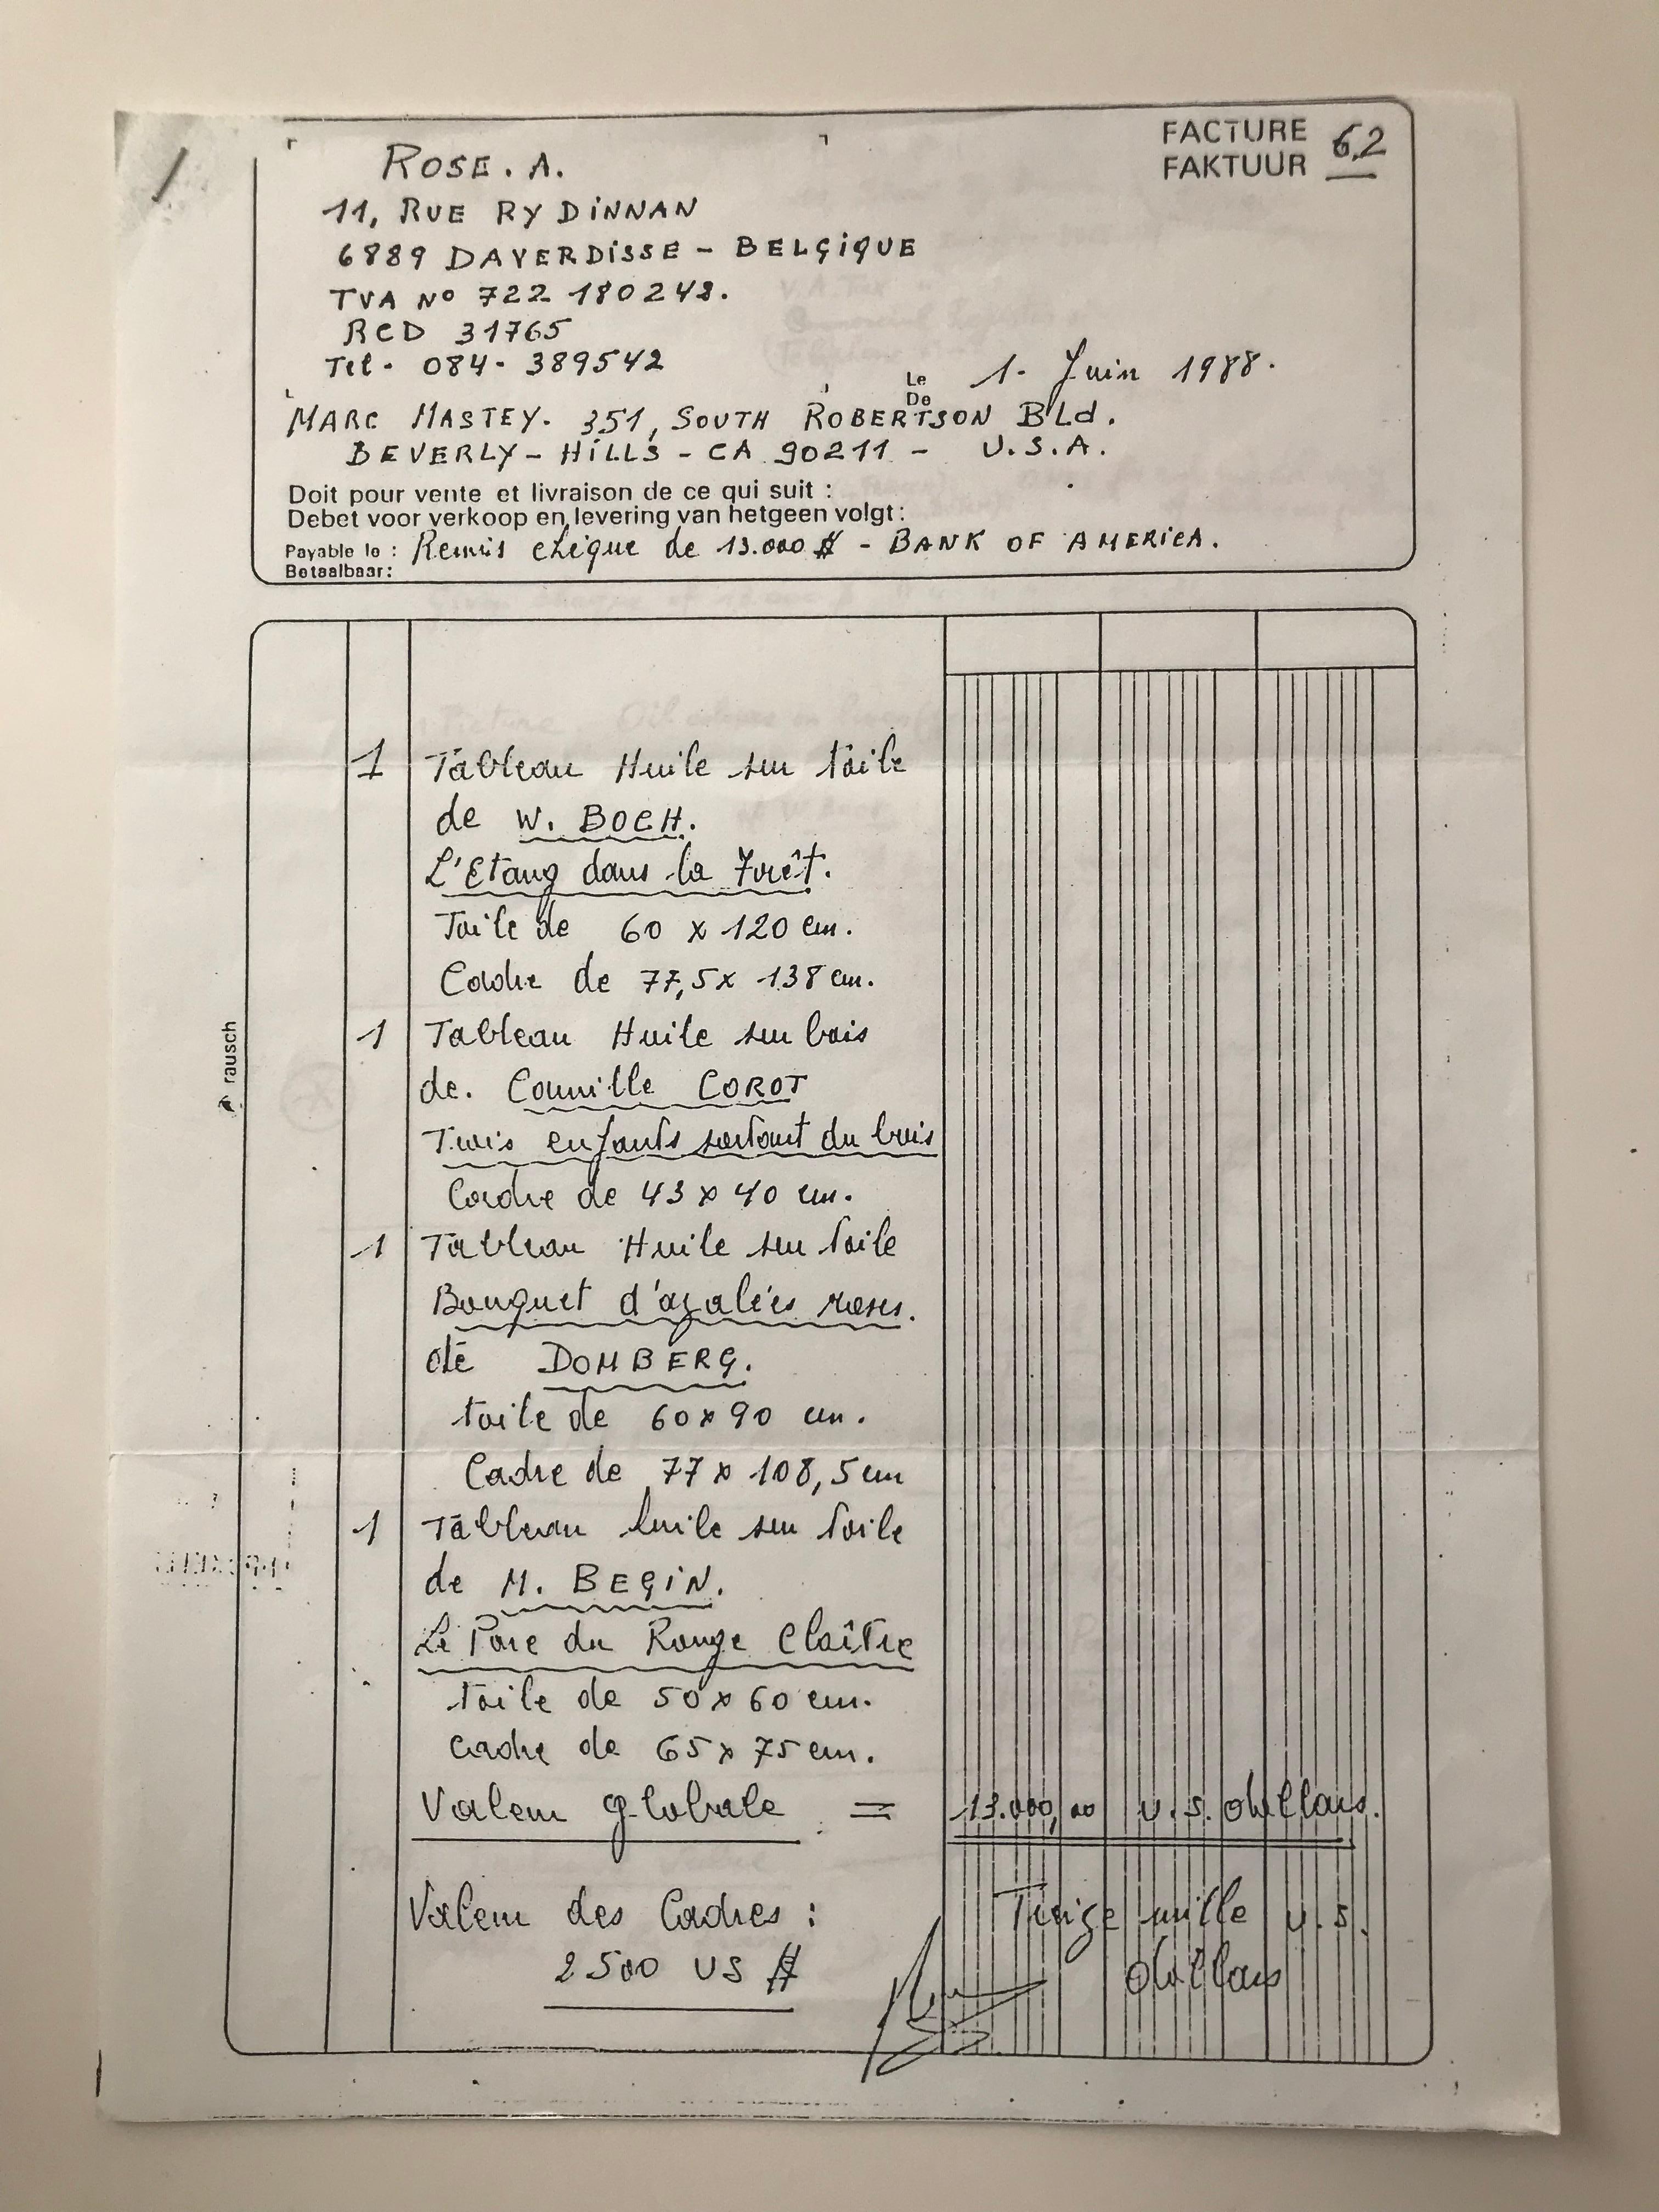 FACTURE 62
FAKTUUR
ROSE. A.
11, RUE RY DINNAN
6889 DAVERDISSE - BELGIQUE
TVA Nº 722 180248.
RCD 31765
Tel. 084-389542
Le
De
1. Juin 1988.
MARC MASTEY. 351, SOUTH ROBERTSON BLd.
BEVERLY-HILLS - CA 90211 - U.S.A.
Doit pour vente et livraison de ce qui suit :
Debet voor verkoop en levering van hetgeen volgt :
Payable le : Remis chèque de 13.000 $ - BANK OF AMERICA.
Betaalbaar:
1 Tableau Huile sur toile
de W. BOCH.
L'Etang dans la Forêt.
Toile de 60 x 120 cm.
Cadre de 77,5 x 138 cm.
1 Tableau Huile sur bois
de. Camille COROT
Trois enfants sortant du bois
Cadre de 43 x 40 cm.
1 Tableau Huile sur toile
Bouquet d'azalées roses.
de DOMBERG.
toile de 60 x 90 cm.
Cadre de 77 x 108,5 cm
1 Tableau huile sur toile
de M. BEGIN.
Le Parc du Rouge Cloître
toile de 50 x 60 cm.
cadre de 65 x 75 cm.
Valeur globale = 13.000,00 U.S. dollars.
Valeur des Cadres : Treize mille U.S.
2500 US $ dollars
rausch